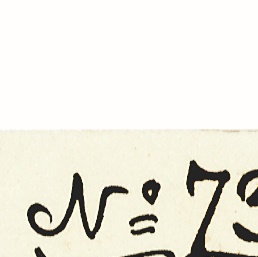 Nº 73